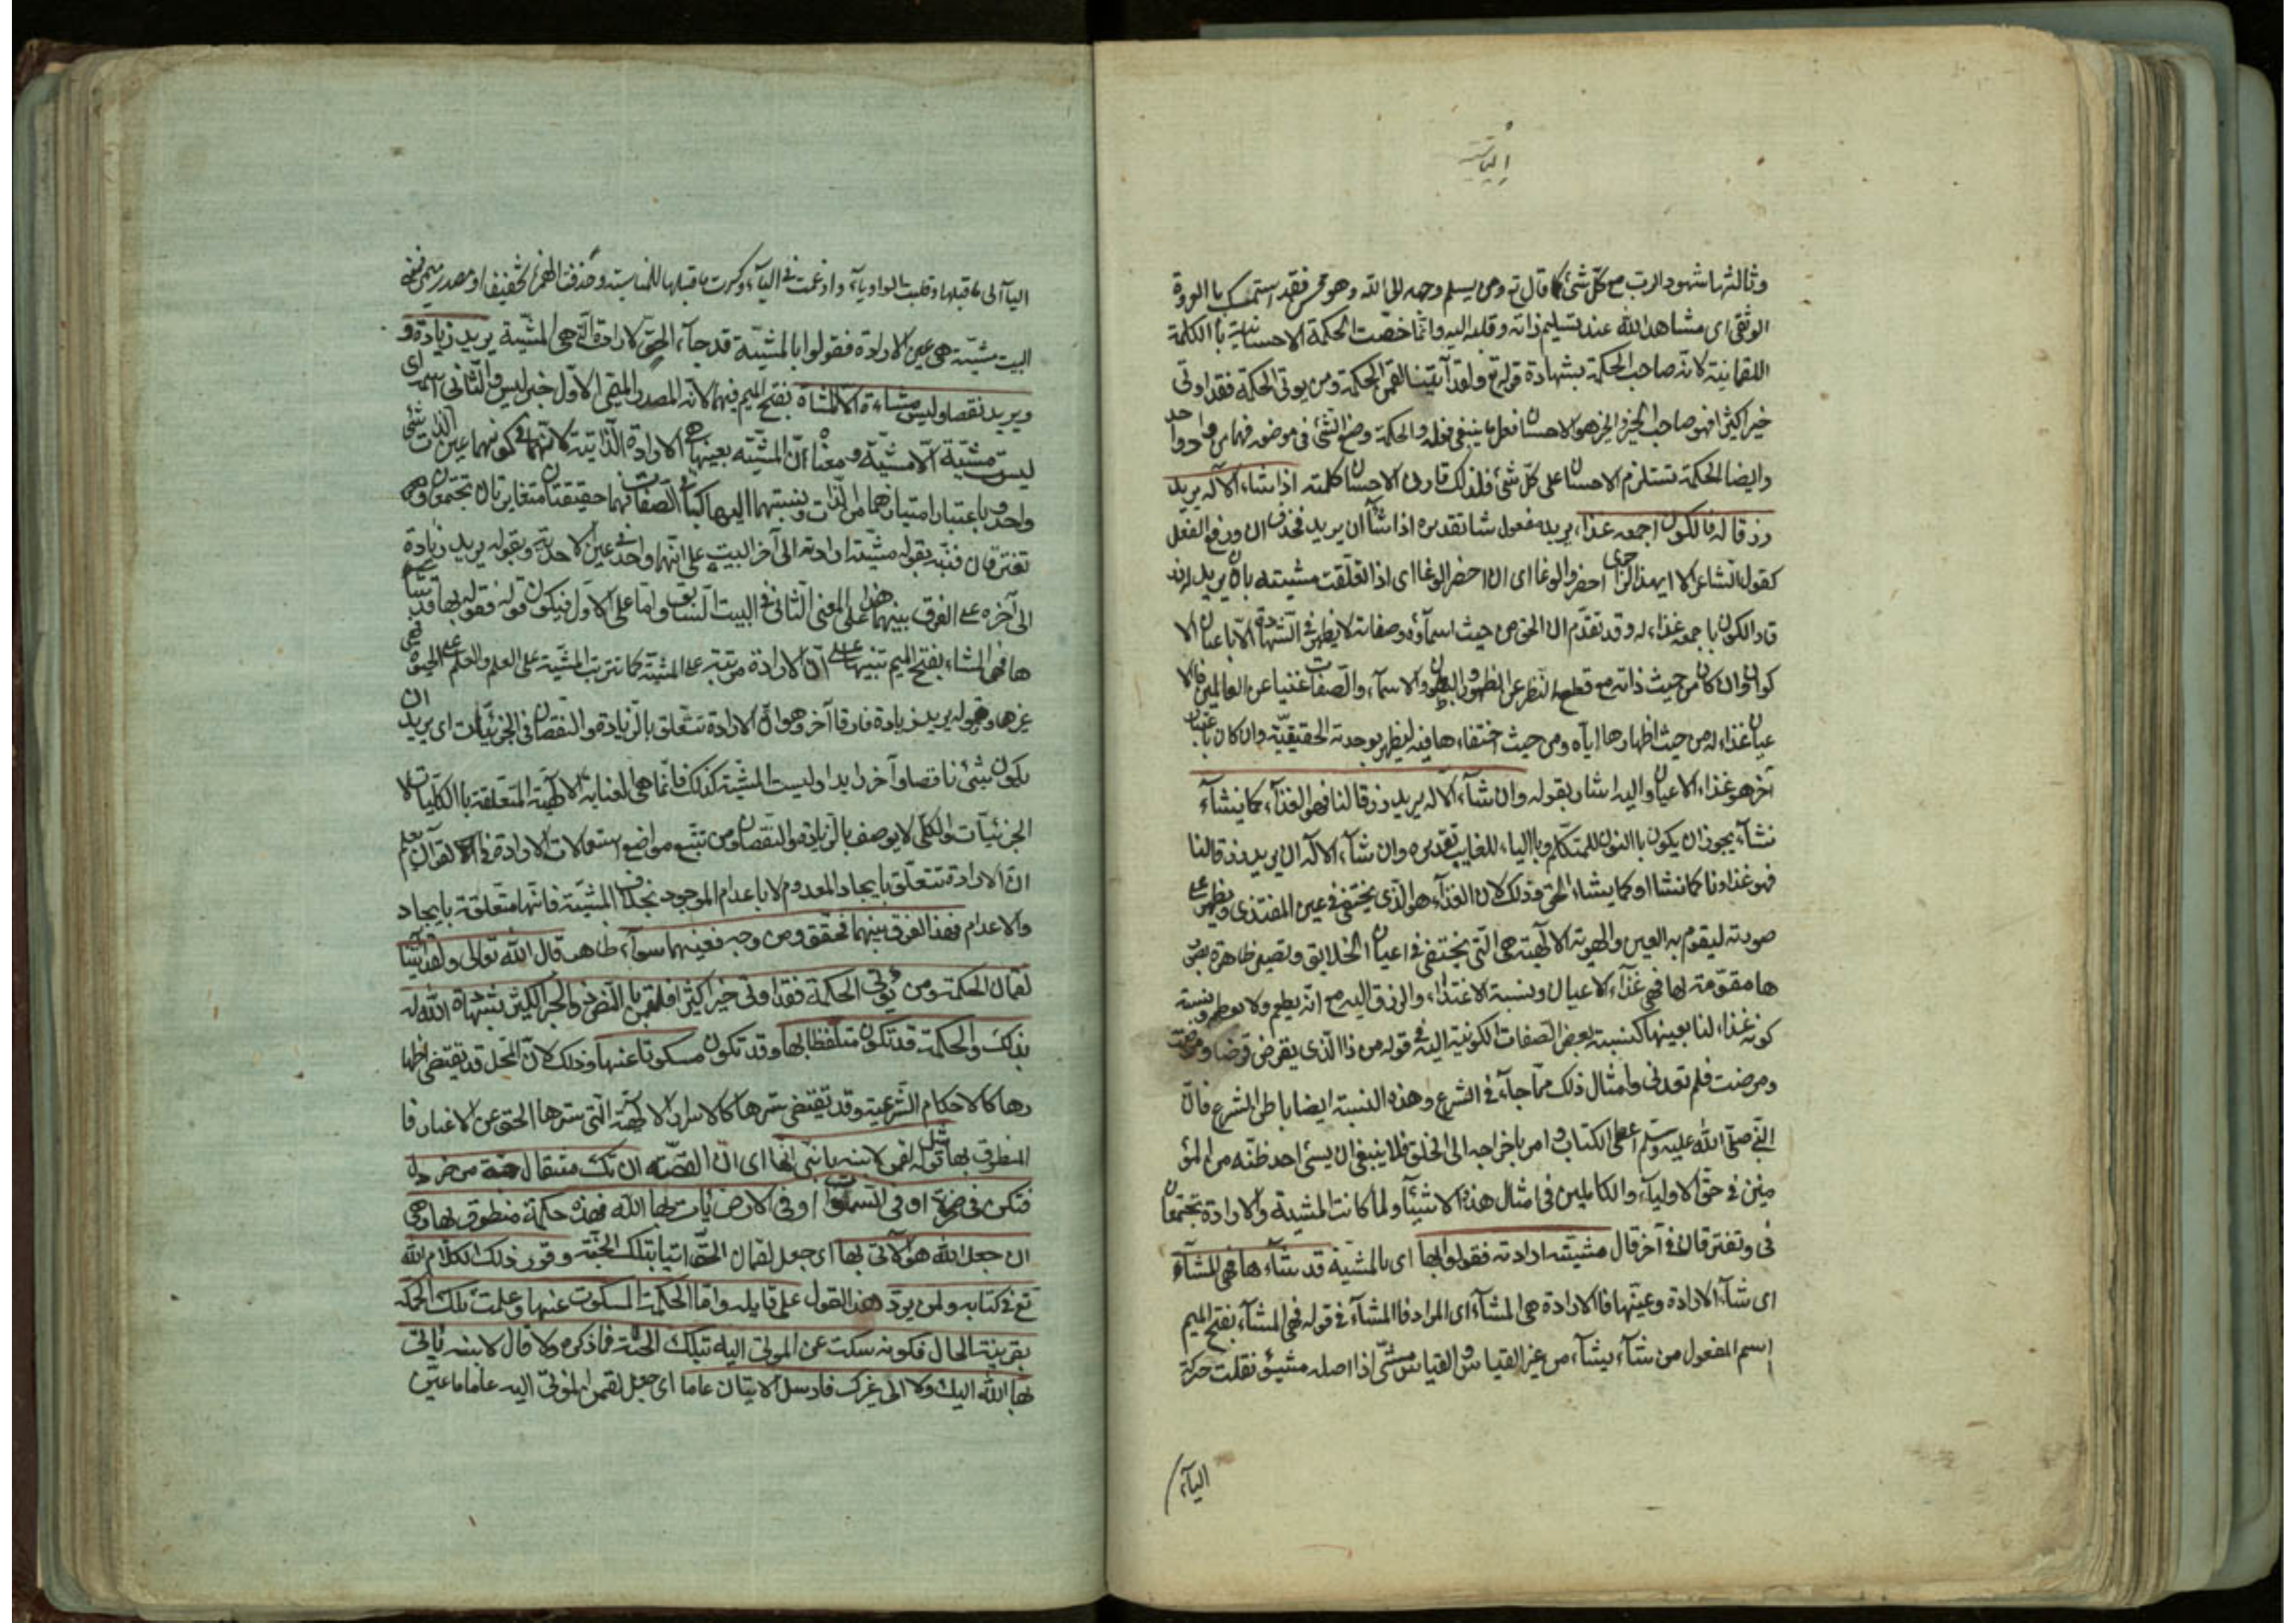 وثالثها شهود الرب مع كل شئ كما قال تع ومن يسلم وجهه الى الله وهو محسن فقد استمسك باالعروة
الوثقى اى مشاهدا لله عند تسليم ذاته وقلبه اليه وانما خصّت الحكمة الاحسانية باالكلمة
اللقمانية لانه صاحب الحكمة بشهادة قوله تع ولقد آتينا لقمن الحكمة ومن يوتى الحكمة فقد اوتى
خيرا كثيرا فهو صاحب الخير والخير هو الاحسان فعل ما ينبغى فعله والحكمة وضع الشئ فى موضعه فهما من واحد
وايضا الحكمة تستلزم الاحسان على كلّ شئ فلذلك قارن الاحسان كلمته اذا شاء الآله يريد
رزقا له فالكون اجمعه غذاء يريد مفعول شا تقديره اذا شآ ان يريد فحذف ان ورفع الفعل
كقول الشاعر الا ايهذا الزاجرى احضر الوغا اى ان احضر الوغا اى اذا تعلقت مشيته بان يريد له رز
قا فالكون باجمعه غذاء له وقد تقدّم ان الحق من حيث اسمآؤه وصفاته لا يظهر فى الشهادة الّا باعيان الا
كوان وان كان من حيث ذاته مع قطع النظر عن الظهور والبطون والاسمآء والصفات غنيا عن العالمين فالا
عيان غذاء له من حيث اظهارها اياه ومن حيث اختفاءها فيه ليظهر بوحدته الحقيقيّة وان كان باعتبار
آخر هو غذاء الاعيان واليه اشار بقوله وان شآء الآله يريد رزقا لنا فهو الغذآء كما نشآء
نشآء يجوز ان يكون باالنون للمتكلّم وباالياء للغايب تقديره وان شآء الآله ان يريد رزقا لنا
فهو غذاونا كما نشا او كما يشاء الحق وذلك لان الغذآء هو الذى يختفى فى عين المغتذى ويظهر على
صورته ليقوم به العين والهوية الالهية هى التى تختفى فى اعيان الخلايق وتصير ظاهرة بصور
ها مقوّمة لها فهى غذآء الاعيان ونسبة الاغتذاء والرزق اليه مع انه يطعم ولا يطعم ونسبة
كونه غذاء لنا بعينها كنسبة بعض الصفات الكونية اليه فى قوله من ذا الذى يقرض قرضا
ومرضت فلم تعدنى وامثال ذلك ممّا جآء فى الشرع وهذه النسبة ايضا باطن الشرع فان
النبى صلّى الله عليه وسلم اعطى الكتاب وامر باخراجه الى الخلق فلا ينبغى ان يسئ احد ظنّه من المؤ
منين فى حق الاوليآء والكاملين فى امثال هذه الاشيآء ولما كانت المشية والارادة تجتمعان
فى وتفترقان فى آخر قال مشيته ارادته فقولوا بها اى باالمشية قد شاءها فهى المشآء
اى شآء الارادة وعيّنها فاالارادة هى المشآء اى المراد فاالمشآء فى قوله فهى المشآء بفتح الميم
اسم المفعول من شآء يشآء من غير القياس والقياس مشئ اذ اصله مشيئ نقلت حركة
اليآء
اليآء الى ما قبلها وقلبت الواو ياء وادغمت فى اليآء وكسرت ما قبلها للمناسبة وحذفت الهمزة تخفيفا او مصدر ميمى
البيت مشيّته هى عين الارادة فقولوا باالمشيّة قد جآء الحق الارادة التى هى المشيّة يريد زيادة و
ويريد نقصا وليس مشاءه الا المشاء بفتح الميم فيهما لانه المصدر الميمى الاوّل خبر ليس والثانى اسمه اى
ليس مشيّته الا مشيّته ومعناه انّ المشيّة بعينها هى الارادة الذاتية لانّهما فى كونهما عين الذات شئ
واحد وباعتبار امتيازهما من الذات ونسبتهما اليها كباقى الصفات فهما حقيقتان متغايرتان تجتمعان و
تفترقان فنبّه بقوله مشيّته ارادته الى آخر البيت على انّهما واحد فى عين الاحدية وبقوله يريد زيادة
الى آخره على الفرق بينهما هذا على المعنى الثانى فى البيت السابق واما على الاول فيكون قوله فقولوا بها قد شا
ها فهى المشاء بفتح الميم تنبيها على انّ الارادة مرتبة على المشيّة كما تترتب المشيّة على العلم والعلم على الحيوة
غيرها وبقوله يريد زيادة فارقا آخر وهو انّ الارادة تتعلق باالزيادة والنقصان فى الجزئيّات اى يريد ان
يكون شئ ناقصا وآخر زايدا وليست المشيّة كذلك فانّما هى العناية الالهيّة المتعلقة باالكليّات لا
الجزئيّات والكلّى لا يوصف باالزيادة والنقصان ومن تتبّع مواضع استعمالات الارادة فى القرآن يعلم
ان الارادة تتعلّق بايجاد المعدوم لا باعدام الموجود بخلاف المشيّة فانّها متعلقة بايجاد
والاعدام فهذا الفرق بينهما فحقّق ومن وجه فعينهما سوآء ظاهر قال الله تعالى ولقد آتينا
لقمان الحكمة ومن يؤتى الحكمة فقد اوتى خيرا كثيرا فلقمن باالنص ذو الخير الكثير بشهادة الله له
بذلك والحكمة قد تكون متلفظا بها وقد تكون مسكوتا عنها وذلك لانّ المحل قد يقتضى اظها
رها كاالاحكام الشرعية وقد يقتضى سترها كاالاسرار الالهية التى سترها الحق عن الاغيار فا
المنطوق بها مثل قول لقمن لابنه يا بنى انّها اى ان القصّة ان تك مثقال حبة من خردل
فتكن فى صخرة او فى السموات او فى الارض يأت بها الله فهذه حكمة منطوق بها وهى
ان جعل الله هو الآتى بها اى جعل لقمان الحق آتيا بتلك الحبّة وقرر ذلك الكلام الله
تع فى كتابه ولم يرد هذا القول على قايله واما الحكمة المسكوت عنها وعلمت تلك الحكمة
بقرينة الحال فكونه سكت عن الموتى اليه بتلك الحبّة فما ذكره ولا قال لابنه يأتى
بها الله اليك ولا الى غيرك فارسل الاتيان عاما اى جعل لقمن المؤتى اليه عاما ما عيّن